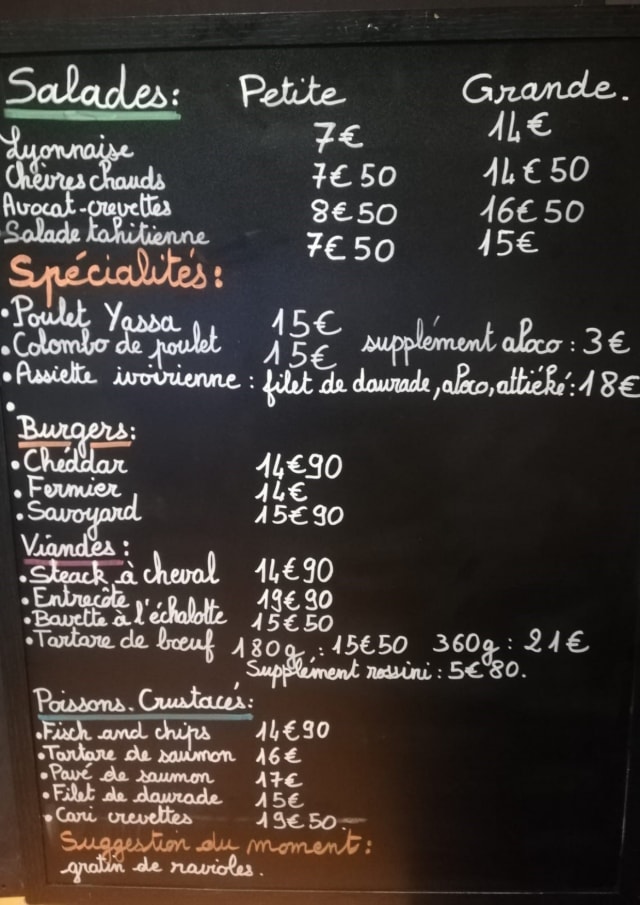 Salades: Petite Grande.
Lyonnaise 7€ 14€
Chèvres chauds 7€50 14€50
Avocat-crevettes 8€50 16€50
Salade tahitienne 7€50 15€
Spécialités:
• Poulet Yassa 15€
• Colombo de poulet 15€ supplément aloco : 3€
• Assiette ivoirienne : filet de daurade, aloco, attiéké : 18€
•
Burgers:
• Cheddar 14€90
• Fermier 14€
• Savoyard 15€90
Viandes :
• Steack à cheval 14€90
• Entrecôte 19€90
• Bavette à l'échalotte 15€50
• Tartare de bœuf 180g : 15€50 360g : 21€
Supplément rossini : 5€80.
Poissons. Crustacés:
• Fisch and chips 14€90
• Tartare de saumon 16€
• Pavé de saumon 17€
• Filet de daurade 15€
• Cari crevettes 19€50.
Suggestion du moment:
gratin de ravioles.